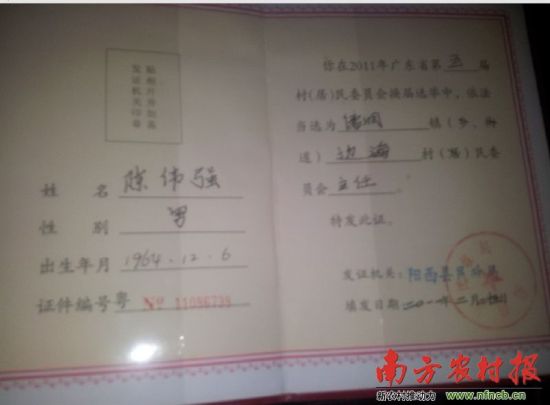 贴相片并加盖
发证机关印章
姓 名 陈伟强
性 别 男
出生年月 1964.12.6
证件编号粤 Nº 11096739
你在2011年广东省第五届
村(居)民委员会换届选举中，依法
当选为 镇(乡、街
道) 边海 村(居)民委
员会 主任 。
特发此证。
发证机关：阳西县民政局
填发日期 二〇一一年二月
南方农村报
新农村推动力 www.nfncb.cn